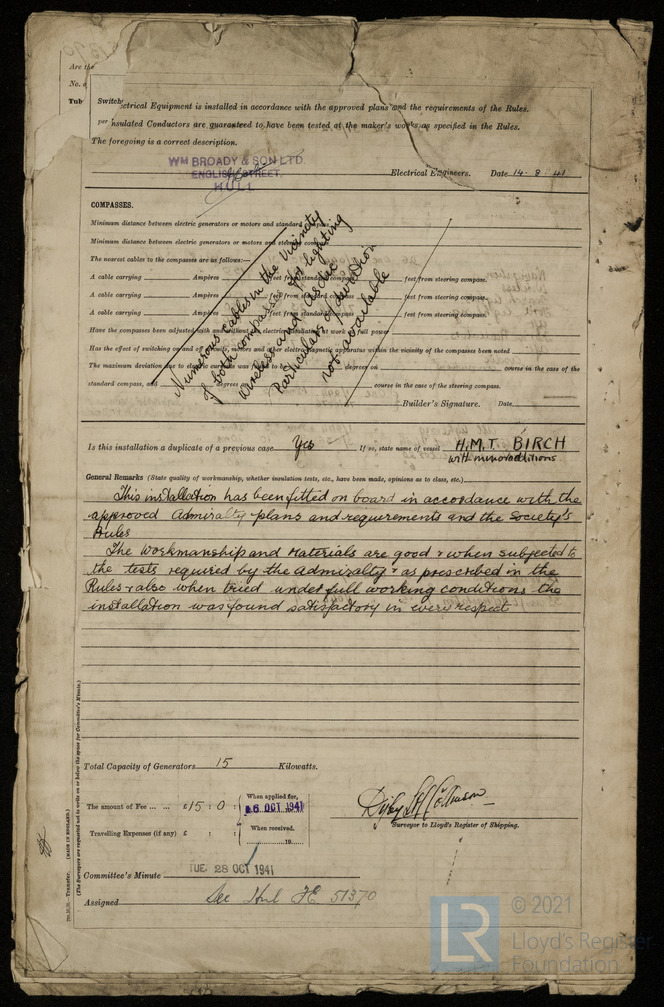 Are the
No. o
Tub
Switch
ectrical Equipment is installed in accordance with the approved plans and the requirements of the Rules.
per Insulated Conductors are guaranteed to have been tested at the maker's works as specified in the Rules.
The foregoing is a correct description.
WM BROADY & SON LTD.
ENGLISH STREET,
HULL
Electrical Engineers. Date 14 · 8 · 41
COMPASSES.
Minimum distance between electric generators or motors and standard compass
Minimum distance between electric generators or motors and steering compass
The nearest cables to the compasses are as follows:—
A cable carrying Ampères feet from standard compass feet from steering compass.
A cable carrying Ampères feet from standard compass feet from steering compass.
A cable carrying Ampères feet from standard compass feet from steering compass.
Numerous cables in the vicinity
of both compasses for lighting
wireless and Asdic
Particulars of deviation
not available
Have the compasses been adjusted with and without the electric installation at work at full power
Has the effect of switching on and off circuits, motors and other electro-magnetic apparatus within the vicinity of the compasses been noted
The maximum deviation due to electric currents was found to be degrees on course in the case of the
standard compass, and degrees course in the case of the steering compass.
Builder's Signature. Date
Is this installation a duplicate of a previous case Yes If so, state name of vessel H.M.T. BIRCH
with minor additions
General Remarks (State quality of workmanship, whether insulation tests, etc., have been made, opinions as to class, etc.)
This installation has been fitted on board in accordance with the
approved Admiralty plans and requirements and the Society's
Rules
The workmanship and materials are good & when subjected to
the tests required by the Admiralty & as prescribed in the
Rules & also when tried under full working conditions the
installation was found satisfactory in every respect
Total Capacity of Generators 15 Kilowatts.
The amount of Fee ... ... £15 : 0 :
When applied for,
16 OCT 1941
Travelling Expenses (if any) £ : :
When received.
19
Surveyor to Lloyd's Register of Shipping.
Committee's Minute TUE. 28 OCT 1941
Assigned See Hul FE 51370
(MADE IN ENGLAND.)
Transfer.
(The Surveyors are requested not to write on or below the space for Committee's Minute.)
LR
© 2021
Lloyd's Register
Foundation